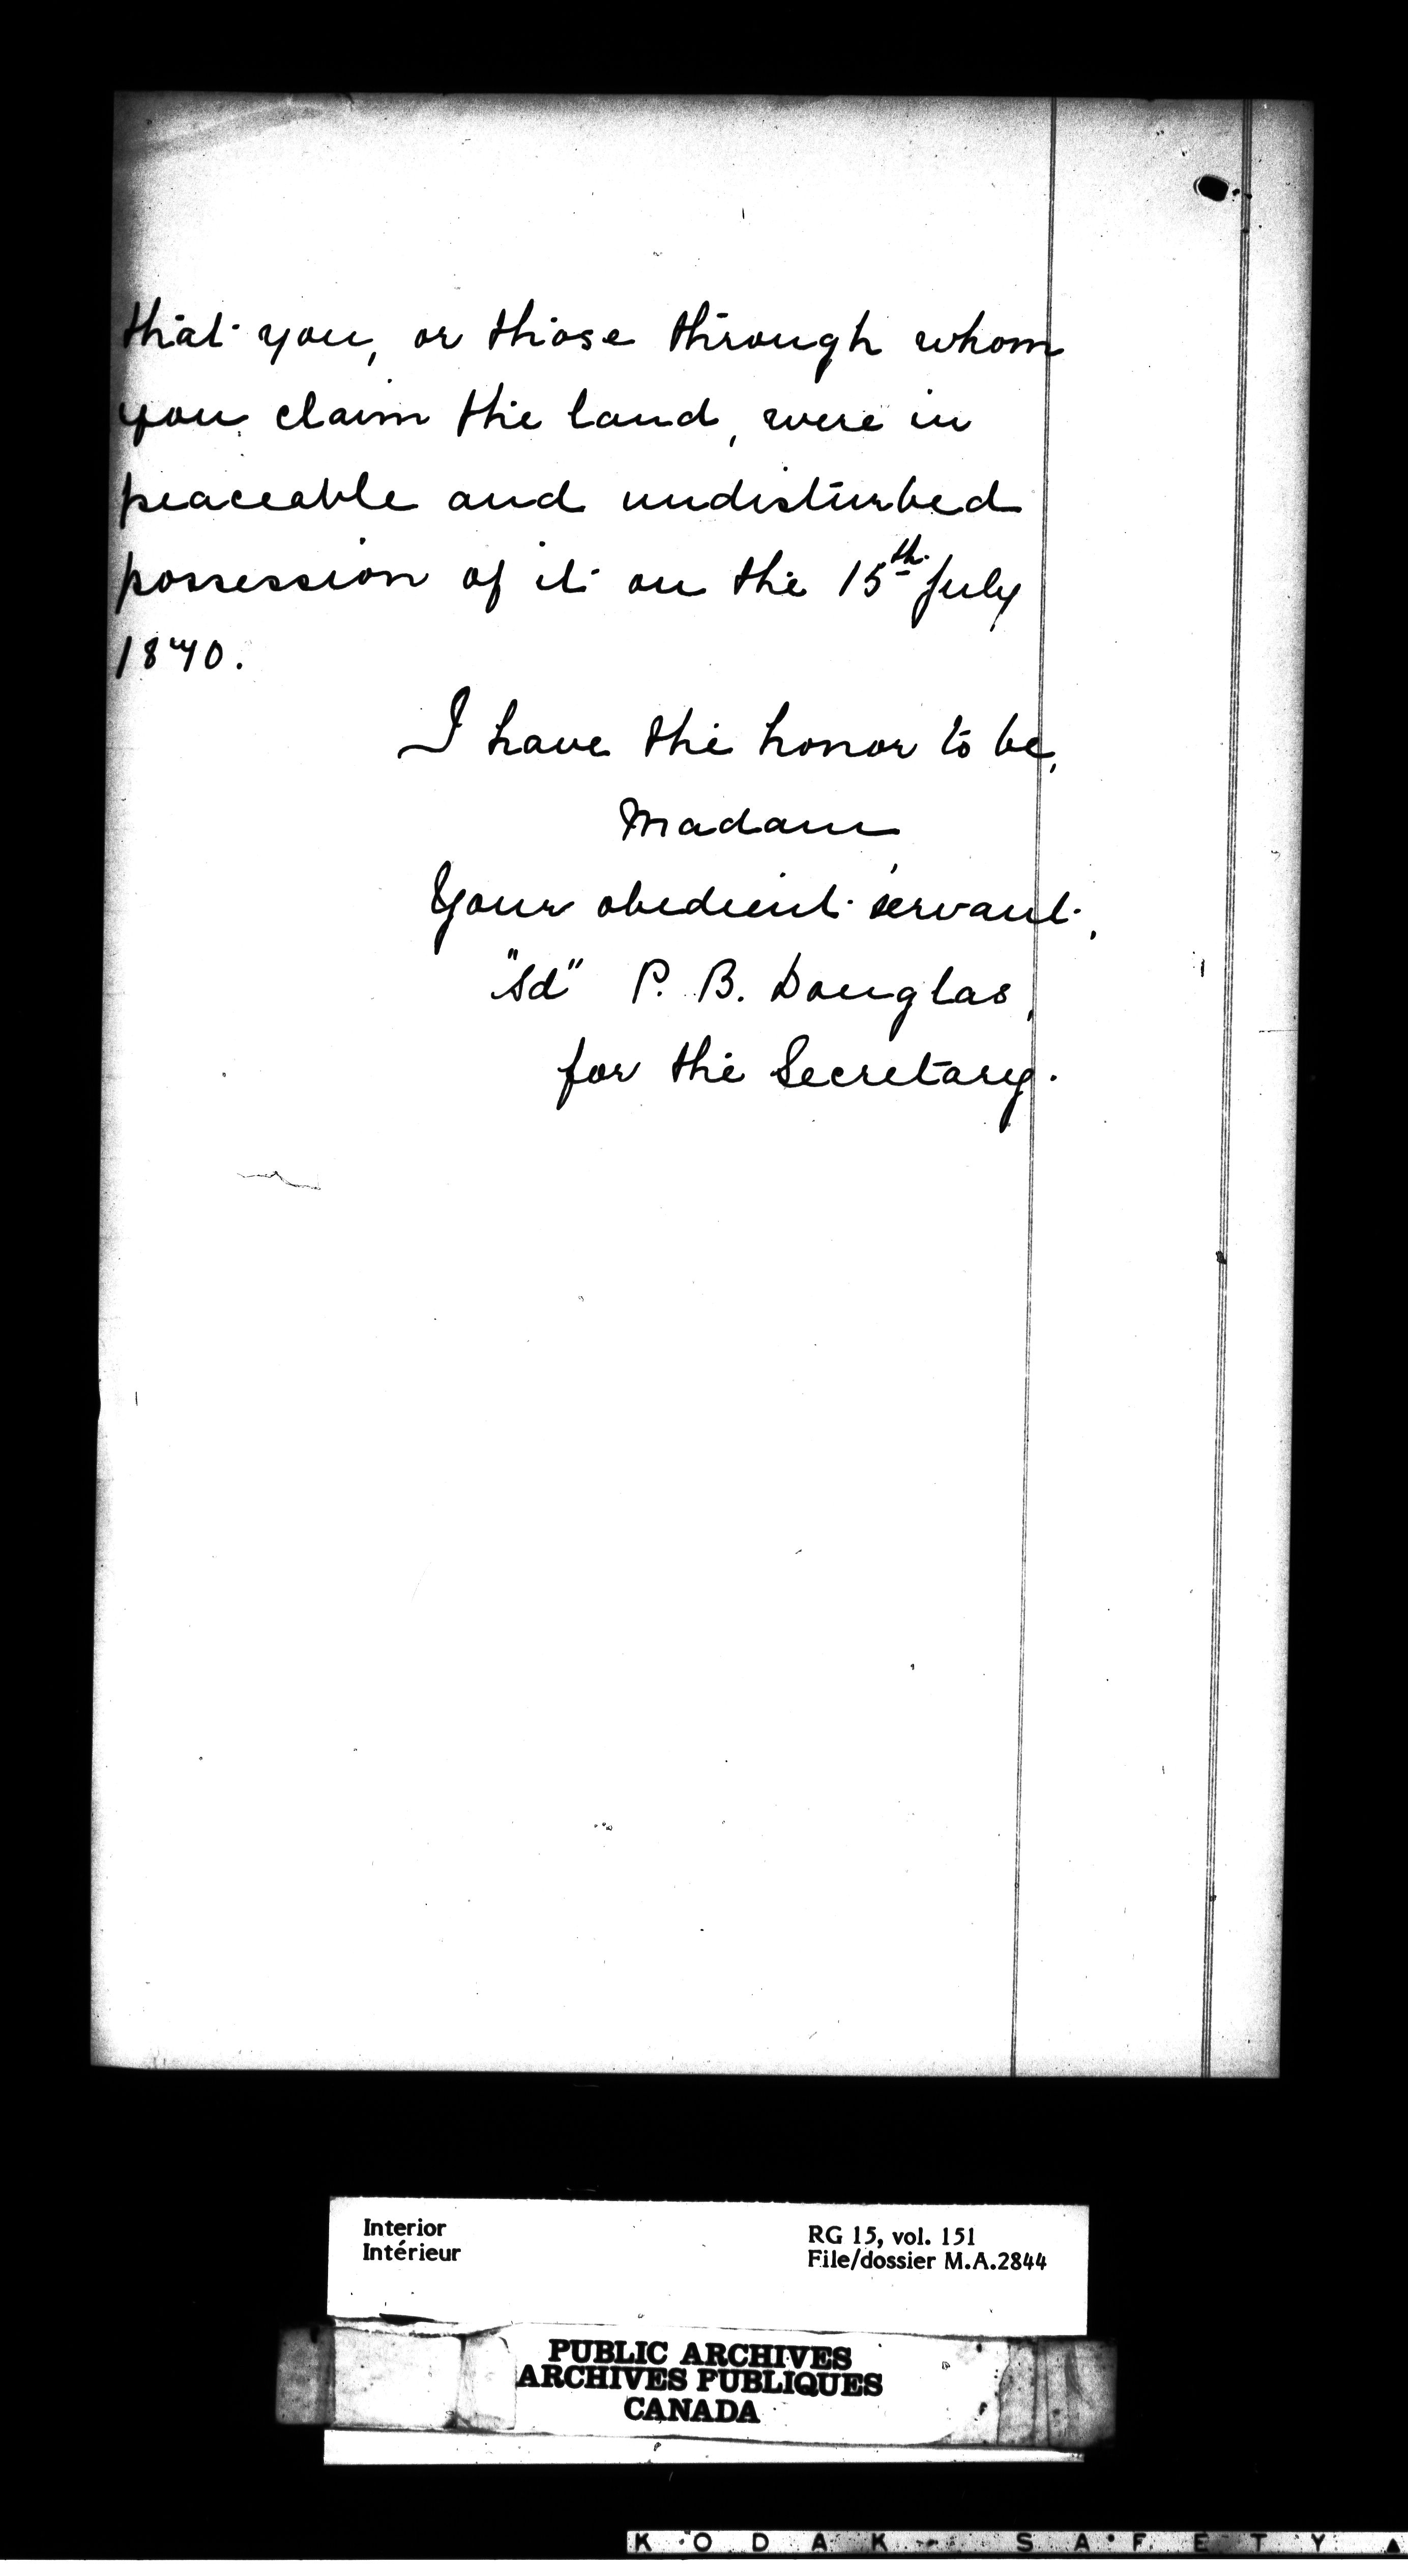 that you, or those through whom
you claim the land, were in
peaceable and undisturbed
possession of it on the 15th July
1870.
I have the honor to be,
Madam
Your obedient servant,
"Sd" P. B. Douglas,
for the Secretary.
Interior
Intérieur
RG 15, vol. 151
File/dossier M.A.2844
PUBLIC ARCHIVES
ARCHIVES PUBLIQUES
CANADA
KODAK SAFETY